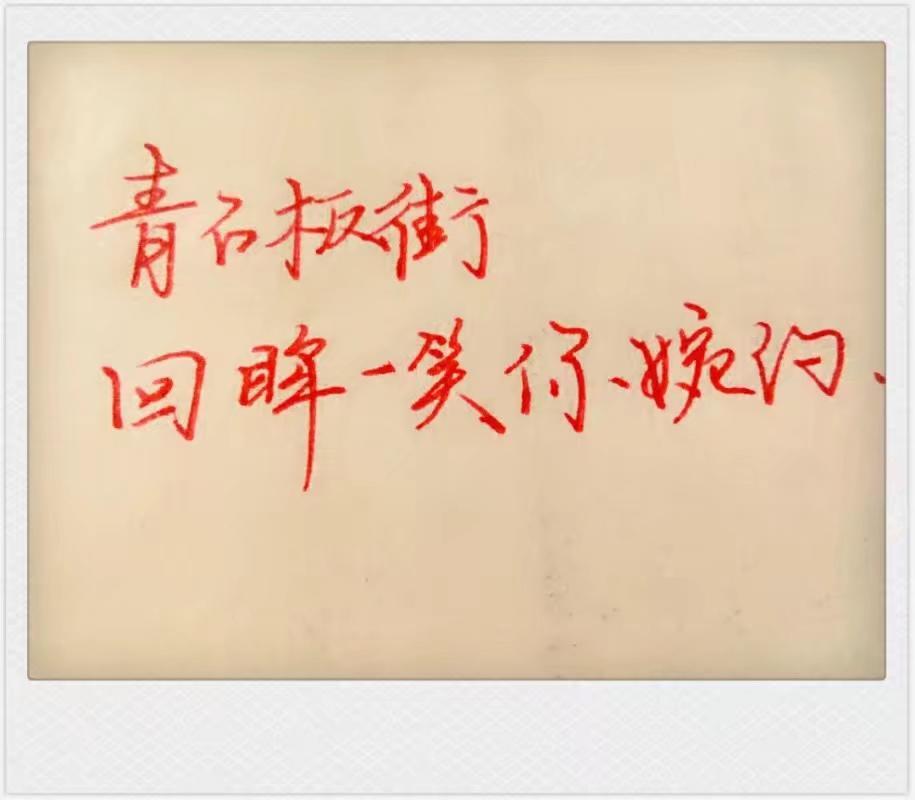 青石板街
回眸一笑你婉约.